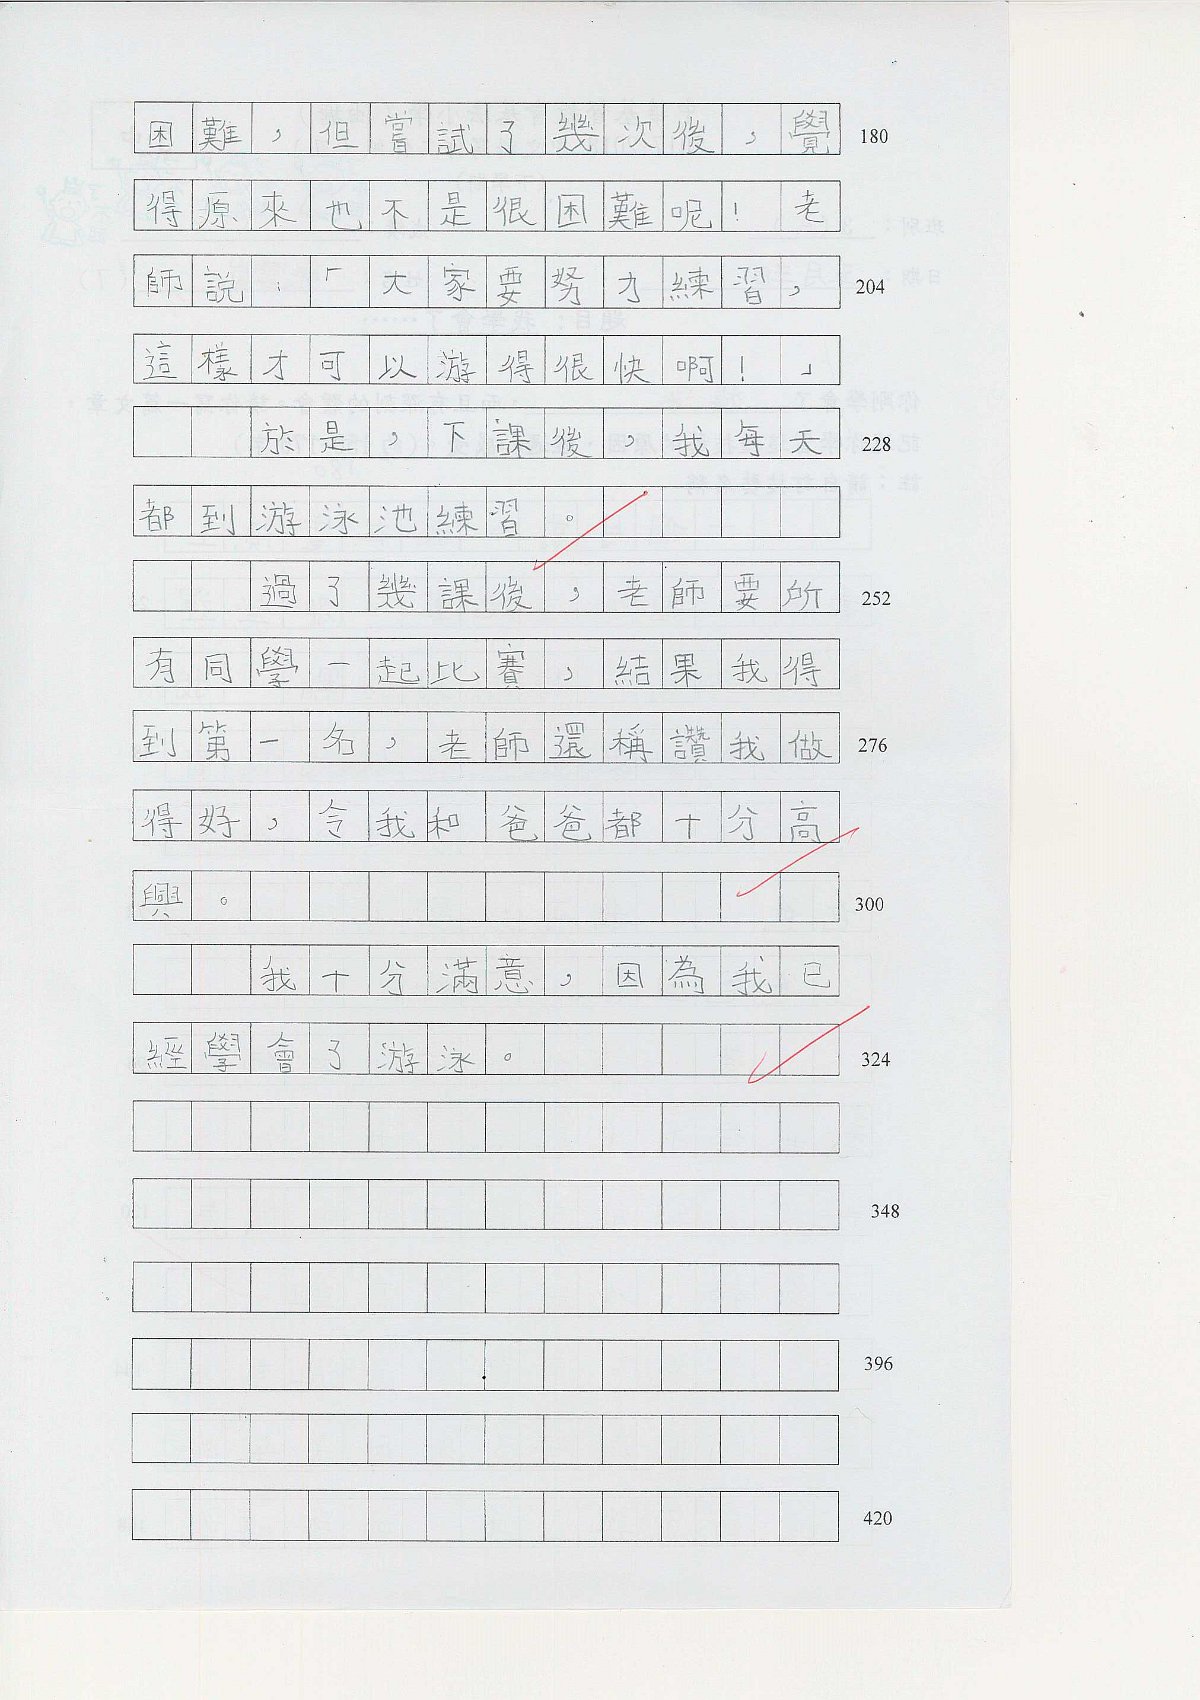 困難，但嘗試了幾次後，覺 180
得原來也不是很困難呢！老
師說：「大家要努力練習， 204
這樣才可以游得很快啊！」
於是，下課後，我每天 228
都到游泳池練習。
過了幾課後，老師要所 252
有同學一起比賽，結果我得
到第一名，老師還稱讚我做 276
得好，令我和爸爸都十分高
興。 300
我十分滿意，因為我已
經學會了游泳。 324
348
396
420